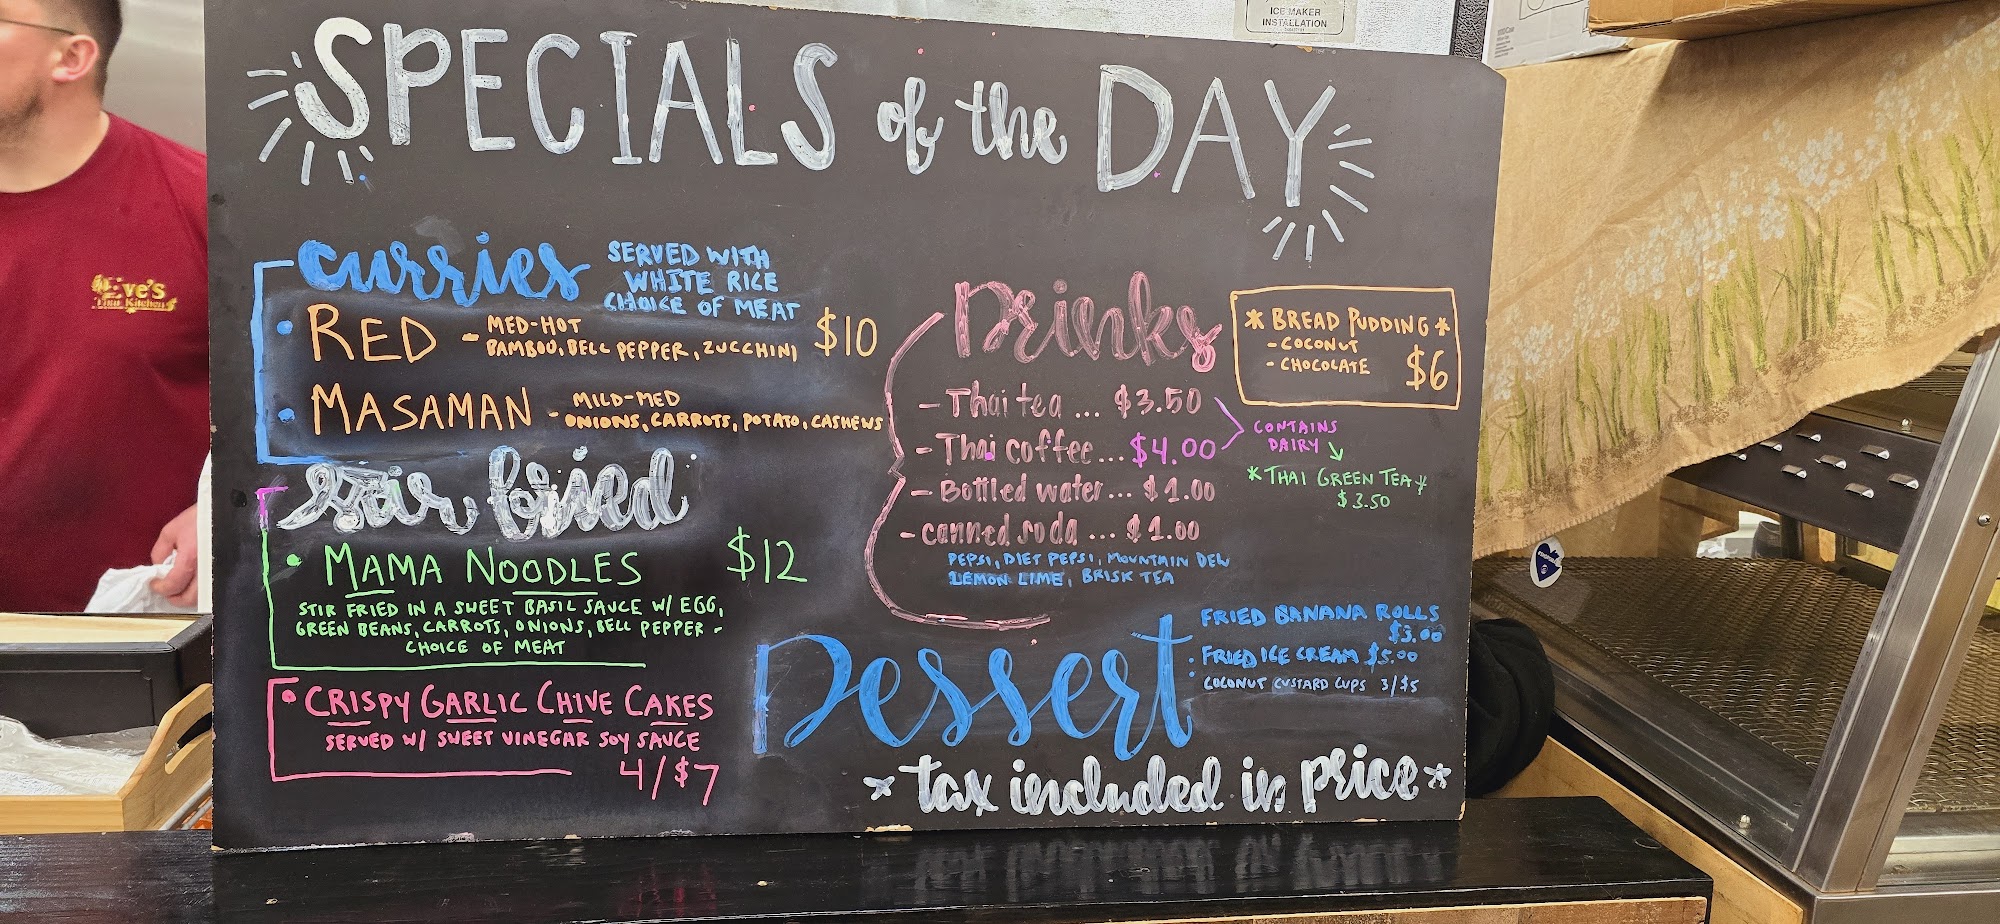 ICE MAKER
INSTALLATION
SPECIALS of the DAY
Curries
SERVED WITH
WHITE RICE
CHOICE OF MEAT
• RED - MED-HOT
BAMBOO, BELL PEPPER, ZUCCHINI
$10
• MASAMAN - MILD-MED
ONIONS, CARROTS, POTATO, CASHEWS
Stir fried
• MAMA NOODLES $12
STIR FRIED IN A SWEET BASIL SAUCE W/ EGG,
GREEN BEANS, CARROTS, ONIONS, BELL PEPPER -
CHOICE OF MEAT
• CRISPY GARLIC CHIVE CAKES
SERVED W/ SWEET VINEGAR SOY SAUCE
4/$7
Drinks
- Thai tea ... $3.50
- Thai coffee... $4.00
- Bottled water... $1.00
- canned soda ... $1.00
PEPSI, DIET PEPSI, MOUNTAIN DEW
LEMON LIME, BRISK TEA
* BREAD PUDDING *
- COCONUT
- CHOCOLATE
$6
CONTAINS
DAIRY
* THAI GREEN TEA *
$3.50
Dessert
FRIED BANANA ROLLS
$3.00
• FRIED ICE CREAM $5.00
• COCONUT CUSTARD CUPS 3/$5
* tax included in price *
Eve's
Thai Kitchen